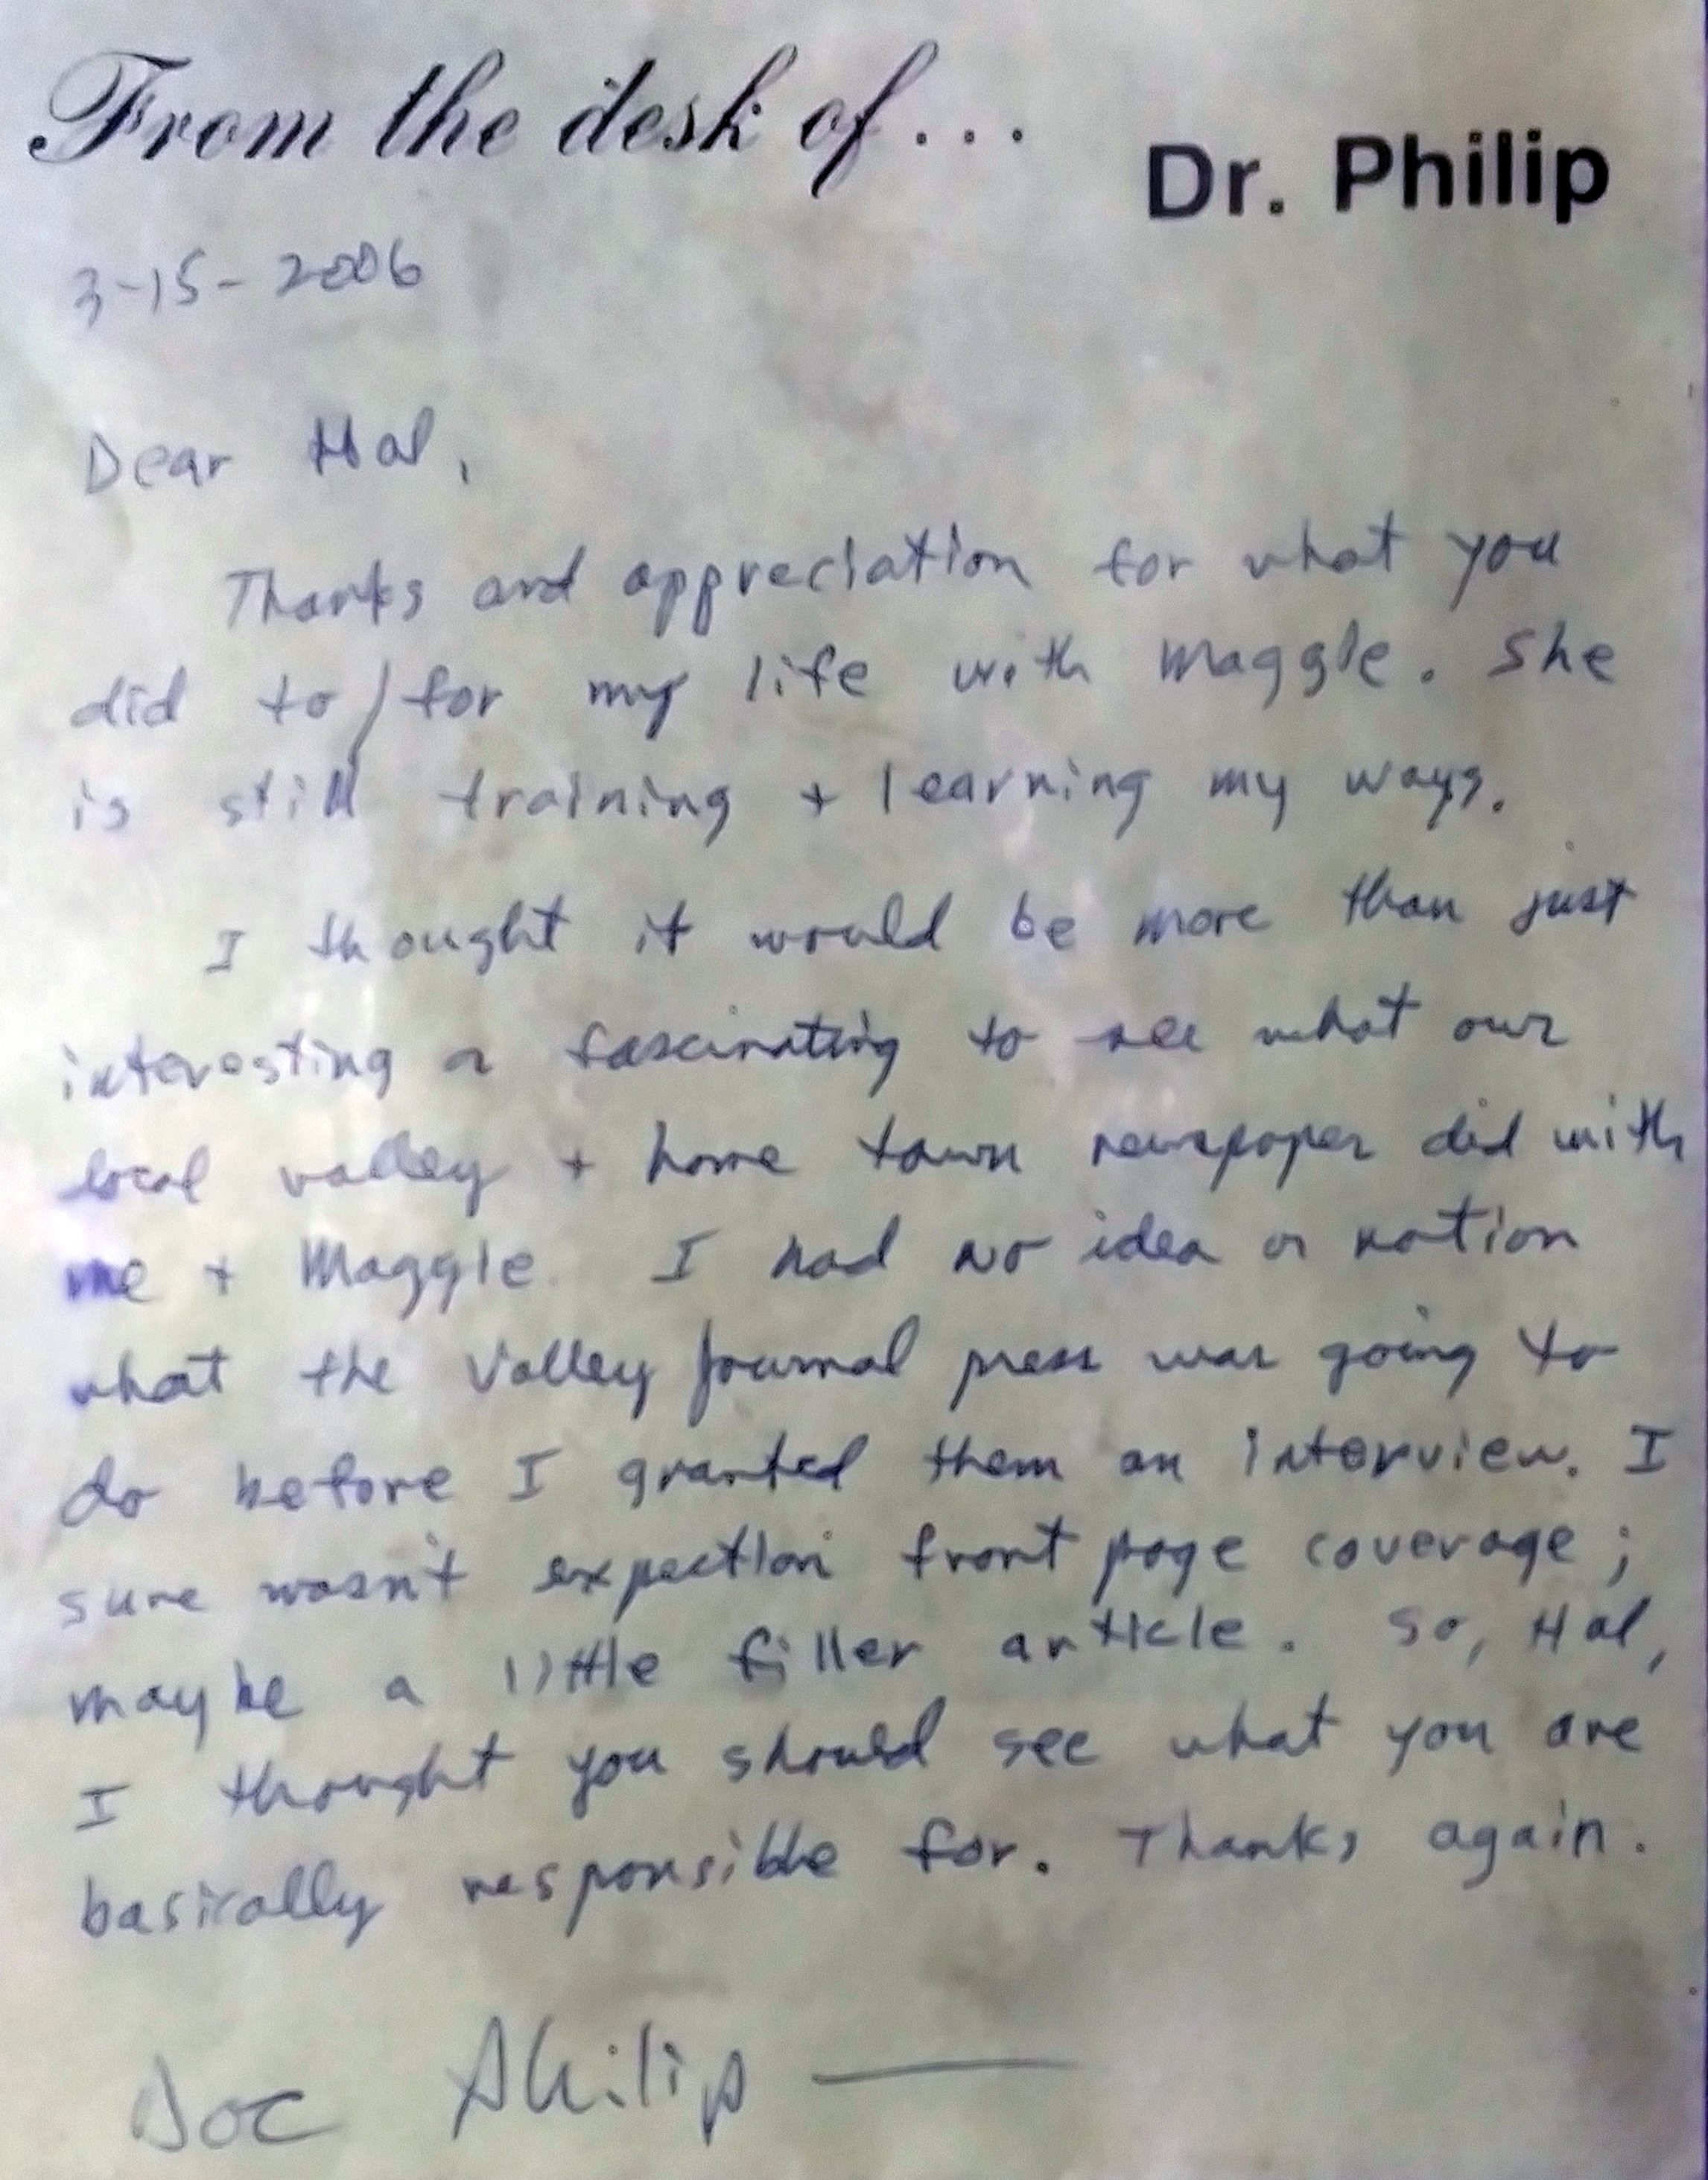 From the desk of... Dr. Philip
3-15-2006
Dear Hal,
Thanks and appreciation for what you
did to/for my life with Maggie. She
is still training + learning my ways.
I thought it would be more than just
interesting or fascinating to see what our
local valley + home town newspaper did with
me + Maggie. I had no idea or notion
what the Valley Journal press was going to
do before I granted them an interview. I
sure wasn't expection front page coverage;
maybe a little filler article. So, Hal,
I thought you should see what you are
basically responsible for. Thanks again.
Doc Philip —